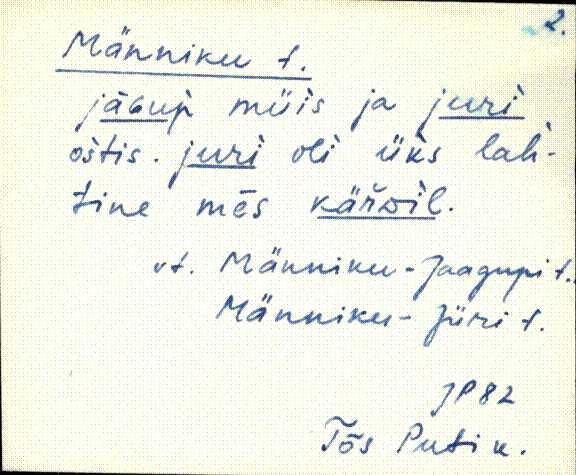 2.
Männiku t.
jāGup müis ja juri
oštis. juri oli üks lah-
tine mēs käřwil.
vt. Männiku-Jaagupi t.,
Männiku-Jüri t.
JP82
Tõs Putik.